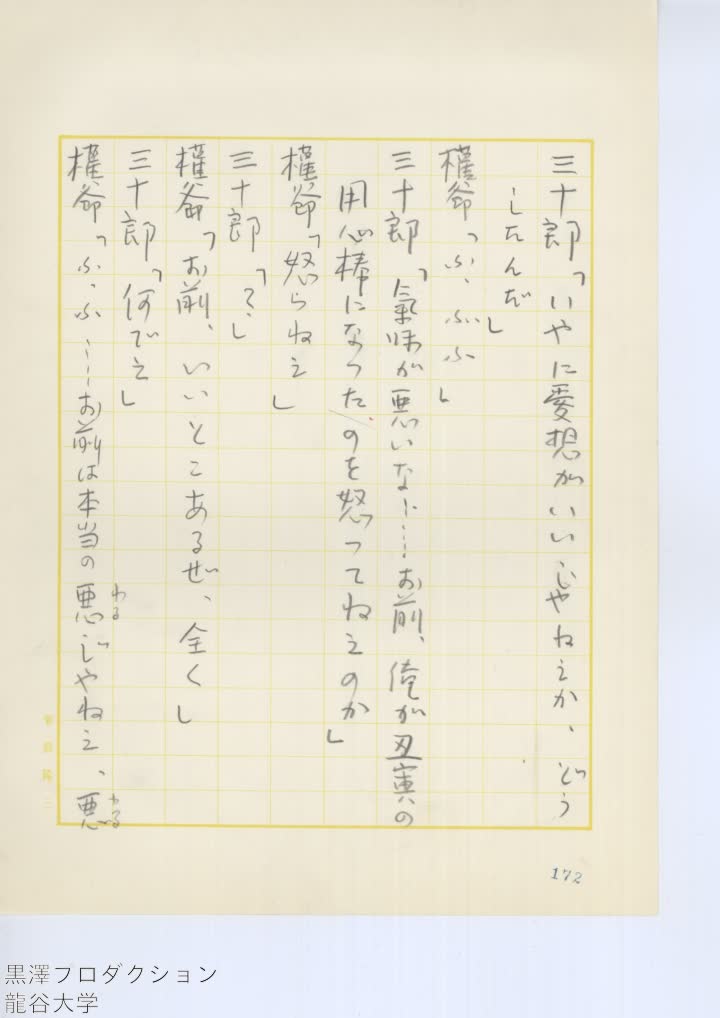 三十郎「いやに愛想がいいじゃねえか、どう
したんだ」
権爺「ふ、ふふ」
三十郎「氣味が悪いな……お前、俺が丑寅の
用心棒になったのを怒ってねえのか」
権爺「怒らねえ」
三十郎「？」
権爺「お前、いいとこあるぜ、全く」
三十郎「何でえ」
権爺「ふ、ふ……お前は本当の悪じゃねえ、悪
わる
わる
172
黒澤プロダクション
龍谷大学